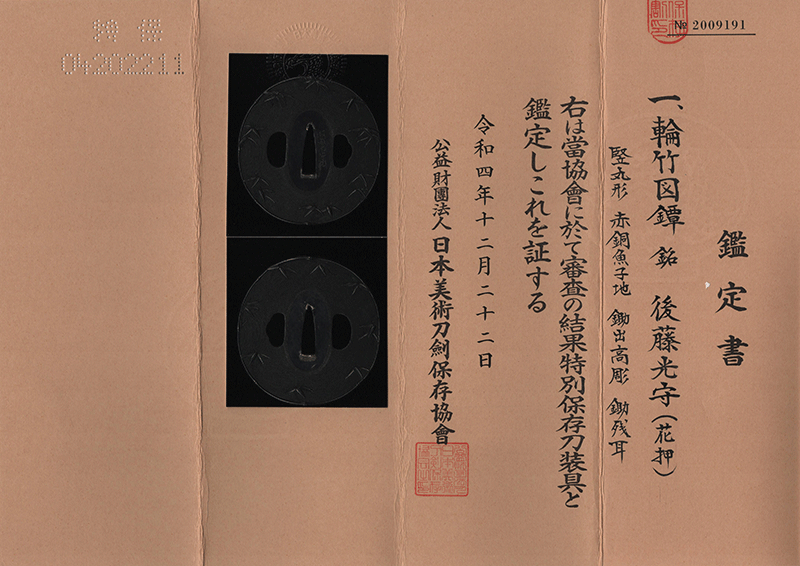 № 2009191
鑑定書
一、輪竹図鐔 銘 後藤光守(花押)
竪丸形 赤銅魚子地 鋤出高彫 鋤残耳
右は當協會に於て審査の結果特別保存刀装具と
鑑定しこれを証する
令和四年十二月二十二日
公益財團法人 日本美術刀劍保存協會
04202211